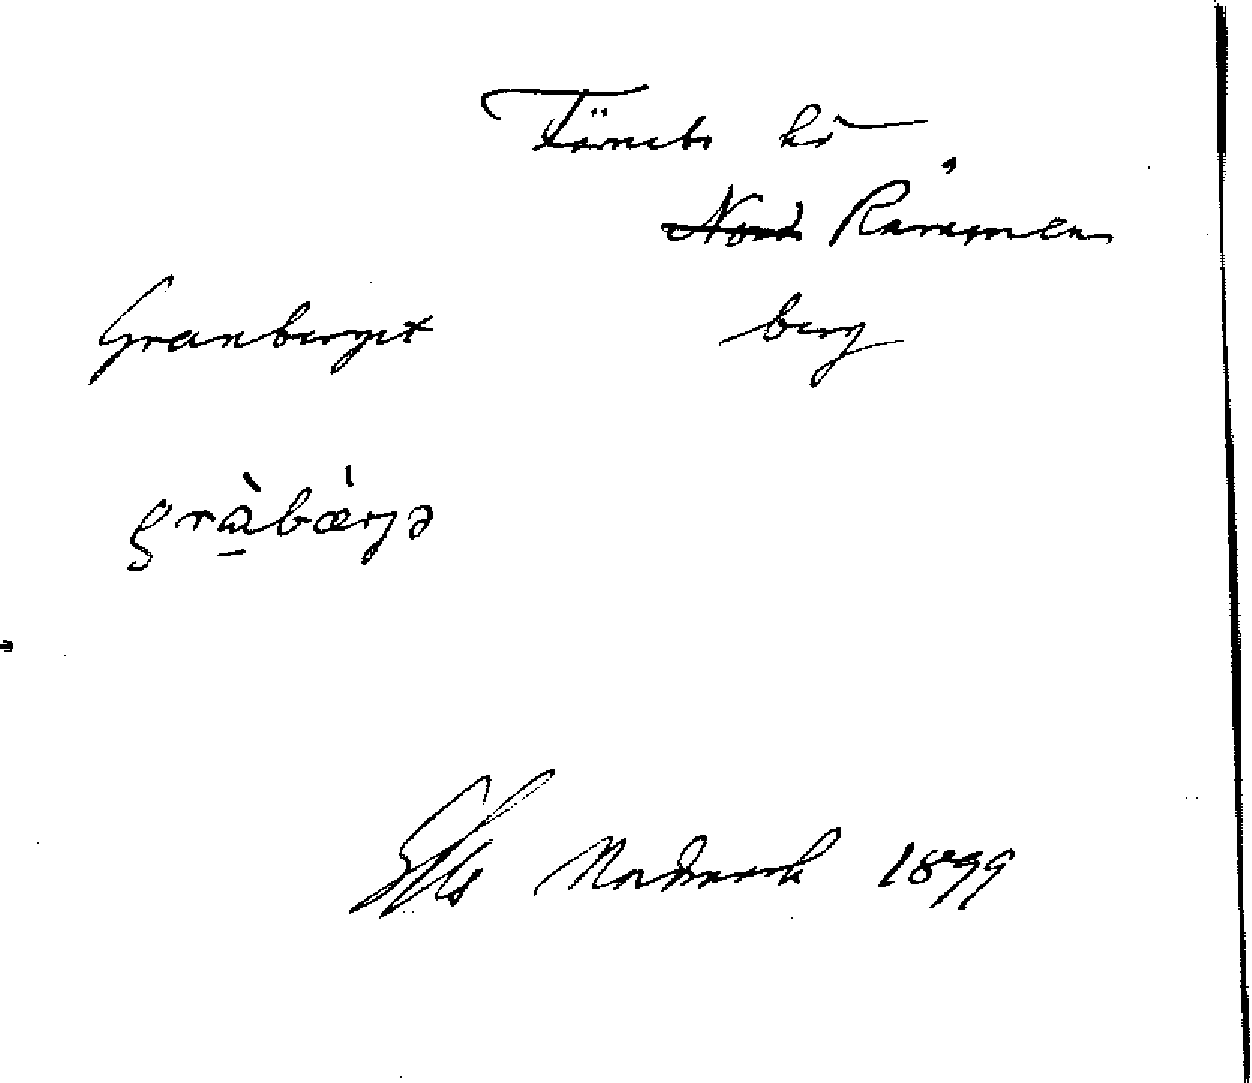 Färnebo hd
Nord Rämmen
Granberget berg
gràbær̀gə
Nordmark 1899